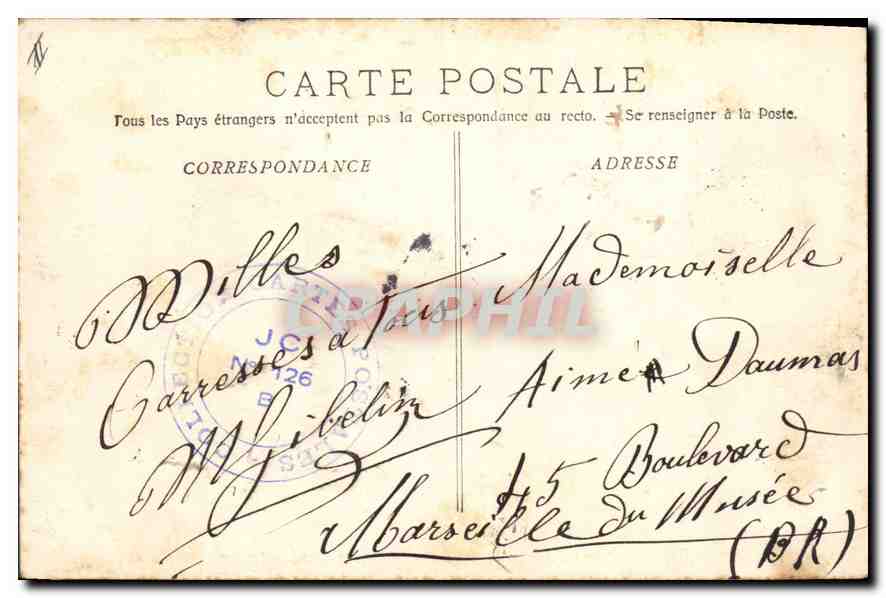 CARTE POSTALE
Tous les Pays étrangers n'acceptent pas la Correspondance au recto. — Se renseigner à la Poste.
CORRESPONDANCE
ADRESSE
Milles
Carresses à Tous
M Gibelin
Mademoiselle
Aimée Daumas
45 Boulevard
du Musée
Marseille
(BR)
COLLECTION CARTES POSTALES
J C
No 126
B
CPAPHIL